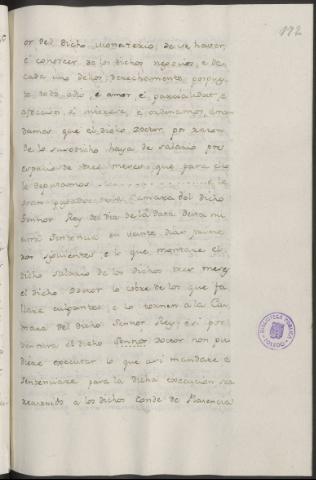 172
or del dicho Monasterio, de se haver,
é conocer de los dichos negocios, e de
cada uno de los derechamente, pospues-
to todo odio, é amor, é parcialidad, é
afeccion, é interese, é ordinamos, é man-
damos que el dicho Doctor, por razon
de lo susodicho haya de salario por
espacio de tres meses que para ello
le deputamos . . . . . . . . . . le
sean pagados de la Camara del dicho
Señor Rey del dia de la data desta nu-
estra Sentencia en veinte dias prime-
ros siguientes, e lo que montare el
dicho salario de los dichos tres meses
el dicho Doctor lo cobre de los que fa-
llare culpantes, e lo tornen a la Ca-
mara del dicho Señor Rey; é si por
ventura el dicho Señor Doctor non pu-
diere executar lo que asi mandare é
sentenciare para la dicha execucion sea
requerido a los dichos Conde de Plasencia
BIBLIOTECA PUBLICA